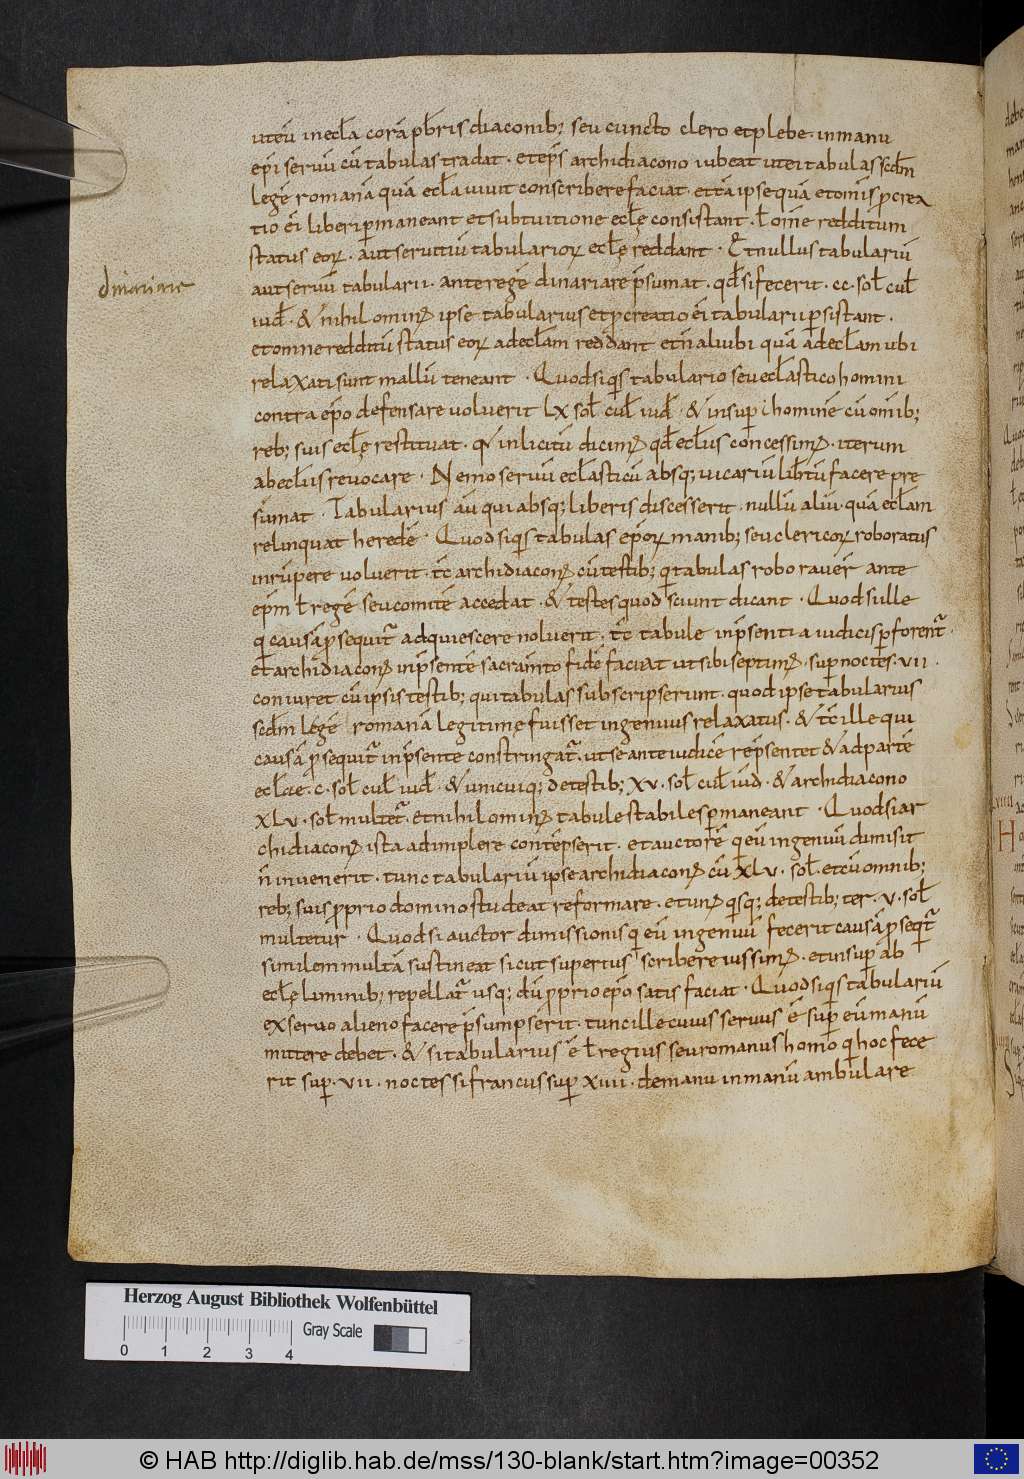 dinariare
uteū in ecła corā pƀris diaconib; seu cuncto clero et plebe · in manu
epi seruū cū tabulas tradat · et eps archidiacono iubeat ut ei tabulas scdm
legē romanā quā ecła uiuit conscribere faciat · et tā ipse quā et omis pcrea
tio ei liberi pmaneant et sub tuitione ecłę consistant · ł oīne redditum
status eoꝝ · aut seruitiū tabularioꝝ ecłę reddant · Et nullus tabulariū
aut seruū tabularii · ante regē dinariare p̄sumat · qđ si fecerit · cc · soł cuł
iuđ · & nihilominꝰ ipse tabularius et pcreatio ei tabularii psistant ·
et omne redditū status eoꝝ ad ecłam reddant et n̄ aliubi quā ad ecłam ubi
relaxati sunt mallū teneant · Quod si qs tabulario seu ecłastico homini
contra epo defensare uoluerit lx soł cuł iuđ · & insup homine cū omib;
reb; suis ecłę restituat · q̄ inlicitū dicimꝰ qđ ecłius concessimꝰ · iterum
ab ecłiis reuocare · Nemo seruū ecłasticū absq; uicariū liƀtū facere pre
sumat · Tabularius aū qui absq; liberis discesserit · nullū aliū · quā ecłam
relinquat heredē · Quod si qs tabulas epoꝝ manib; seu clericoꝝ roboratus
inrūpere uoluerit · tc̄ archidiaconꝰ cū testib; q tabulas roborauer̄ ante
epm ł regē seu comitē accedat · & testes quod sciunt dicant · Quod si ille
q causā psequit̄ adquiescere noluerit · tc̄ tabule in p̄sentia iudicis pforent̄ ·
et archidiaconꝰ in p̄sente sacramto fidē faciat ut sibi septimꝰ · sup noctes · vii ·
coniuret cū ipsis testib; qui tabulas subscripserunt · quod ipse tabularius
scdm legē romanā legitime fuisset ingenuus relaxatus · & tc̄ ille qui
causā psequit̄ in p̄sente constringat̄ · ut se ante iudicē rep̄sentet & ad partē
ecłae · c · soł cuł iuđ · & unicuiq; de testib; xv · soł cuł iuđ · & archidiacono
xlv · soł multet̄ · et nihilominꝰ tabule stabiles pmaneant · Quod si ar
chidiaconꝰ ista adimplere contēpserit · et auctorē q eū ingenuū dimisit
n̄ inuenerit · tunc tabulariū ipse archidiaconꝰ cū xlv · soł · et cū omnib;
reb; suis pprio domino studeat reformare · et unꝰ qsq; de testib; ter · v · soł
multetur · Quod si auctor dimissionis q eū ingenuū fecerit causā pseqt̄
similem multā sustineat sicut superius scribere iussimꝰ · et insup ab
ecłę liminib; repellat̄ usq; dū pprio epo satis faciat · Quod si qs tabulariū
ex seruo alieno facere p̄sumpserit · tunc ille cuius seruus ē sup eū manū
mittere debet · & si tabularius ē ł regius seu romanus homo q hoc fece
rit sup · vii · noctes si francus sup xiiii · de manu in manū ambulare
Herzog August Bibliothek Wolfenbüttel
Gray Scale
0 1 2 3 4
© HAB http://diglib.hab.de/mss/130-blank/start.htm?image=00352